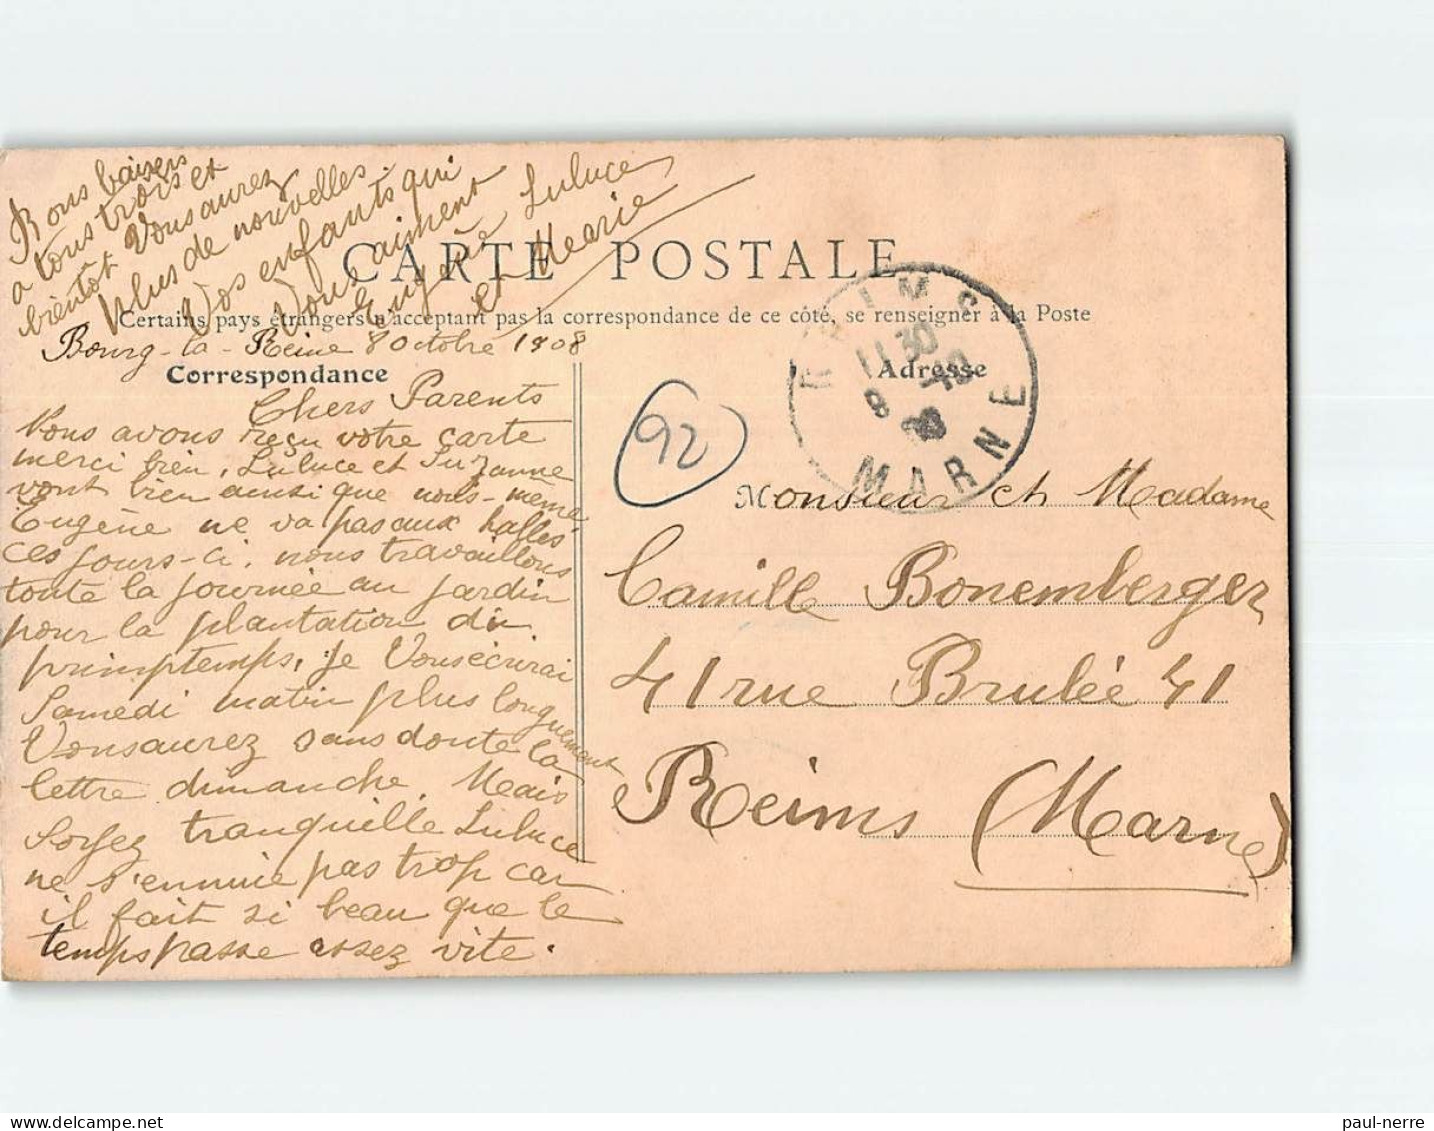 Bons baisers
à tous trois et
bientôt Vous aurez
plus de nouvelles.
Vos enfants qui
Vous aiment
Eugène Luluce
et Marie
CARTE POSTALE
Certains pays étrangers n'acceptant pas la correspondance de ce côté, se renseigner à la Poste
Bourg-la-Reine 8 Octobre 1908
Correspondance
Adresse
Chers Parents
Nous avons reçu votre carte
merci bien, Luluce et Suzanne
vont bien ainsi que nous-même
Eugène ne va pas aux halles
ces jours-ci, nous travaillons
toute la journée au jardin
pour la plantation du
primptemps, je Vous écrirai
Samedi matin plus longuement
Vous aurez sans doute la
lettre dimanche. Mais
Soyez tranquille Luluce
ne s'ennuie pas trop car
il fait si beau que le
temps passe assez vite.
92
REIMS
11 30
8 - 10
08
MARNE
Monsieur et Madame
Camille Bonemberger
41 rue Brulée 41
Reims (Marne)
delcampe.net
paul-nerre